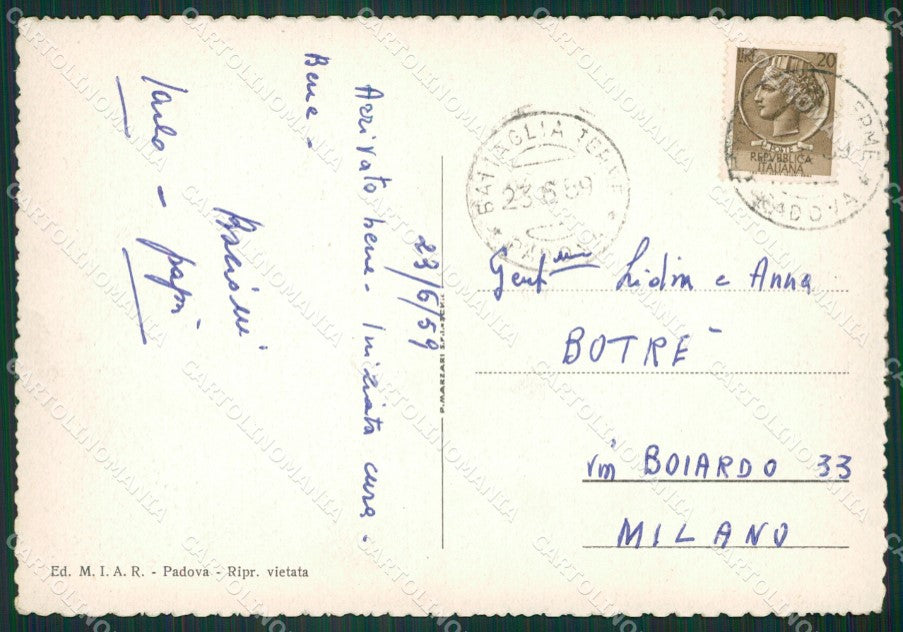 23/6/59
Arrivato bene - Iniziata cura -
Bene -
Bacioni
papi
LIRE 20
POSTE
REPVBBLICA
ITALIANA
BATTAGLIA TERME
23.6.59
* PADOVA *
TERME
59
* PADOVA *
Gent.me Lidia e Anna
BOTRE'
via BOIARDO 33
MILANO
P. MARZARI
Ed. M. I. A. R. - Padova - Ripr. vietata
CARTOLINOMANIA